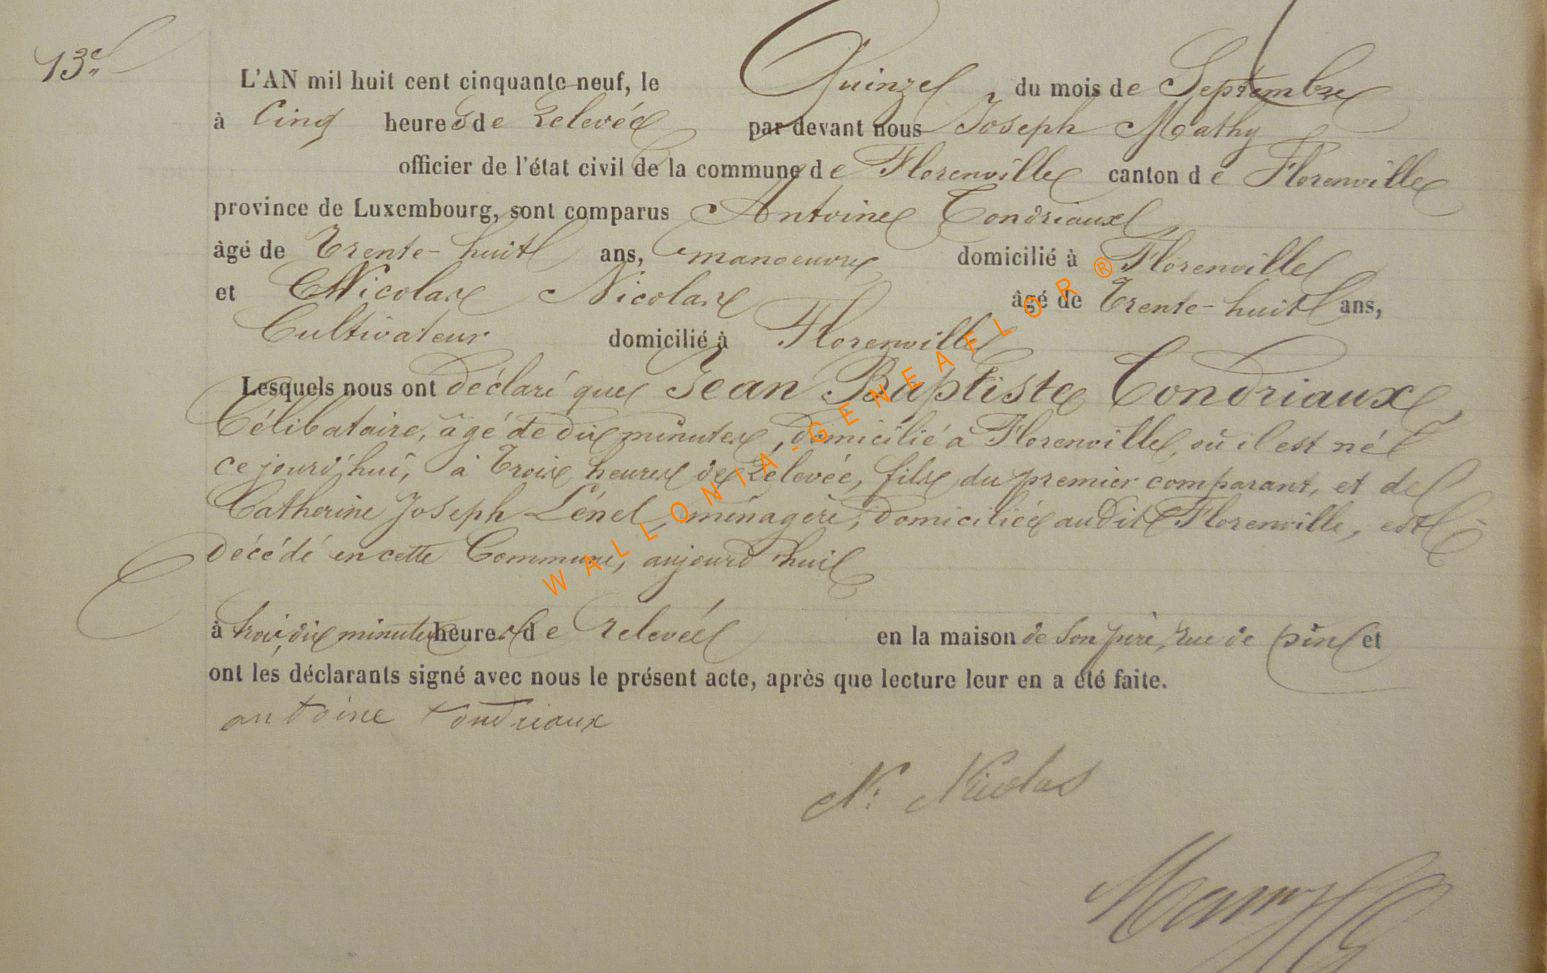 13e
L'AN mil huit cent cinquante-neuf, le Quinze, du mois de Septembre
à Cinq heures de Relevée par devant nous Joseph Mathy
officier de l'état civil de la commune de Florenville canton de Florenville
province de Luxembourg, sont comparus Antoine Tondriaux
âgé de Trente-huit ans, manoeuvre domicilié à Florenville
et Nicolas Nicolas âgé de Trente-huit ans,
Cultivateur domicilié à Florenville
Lesquels nous ont déclaré que Jean Baptiste Tondriaux,
Célibataire, âgé de dix minutes, domicilié à Florenville, où il est né
ce jourd'hui, à Trois heures de Relevée, fils du premier comparant, et de
Catherine Joseph Lénel, ménagère, domiciliée audit Florenville, est
décédé en cette Commune, aujourd'hui
à trois, dix minutes heures de relevée en la maison de son père, rue de et
ont les déclarants signé avec nous le présent acte, après que lecture leur en a été faite.
antoine tondriaux
N. Nicolas
WALLONIA-GENEAELOR®